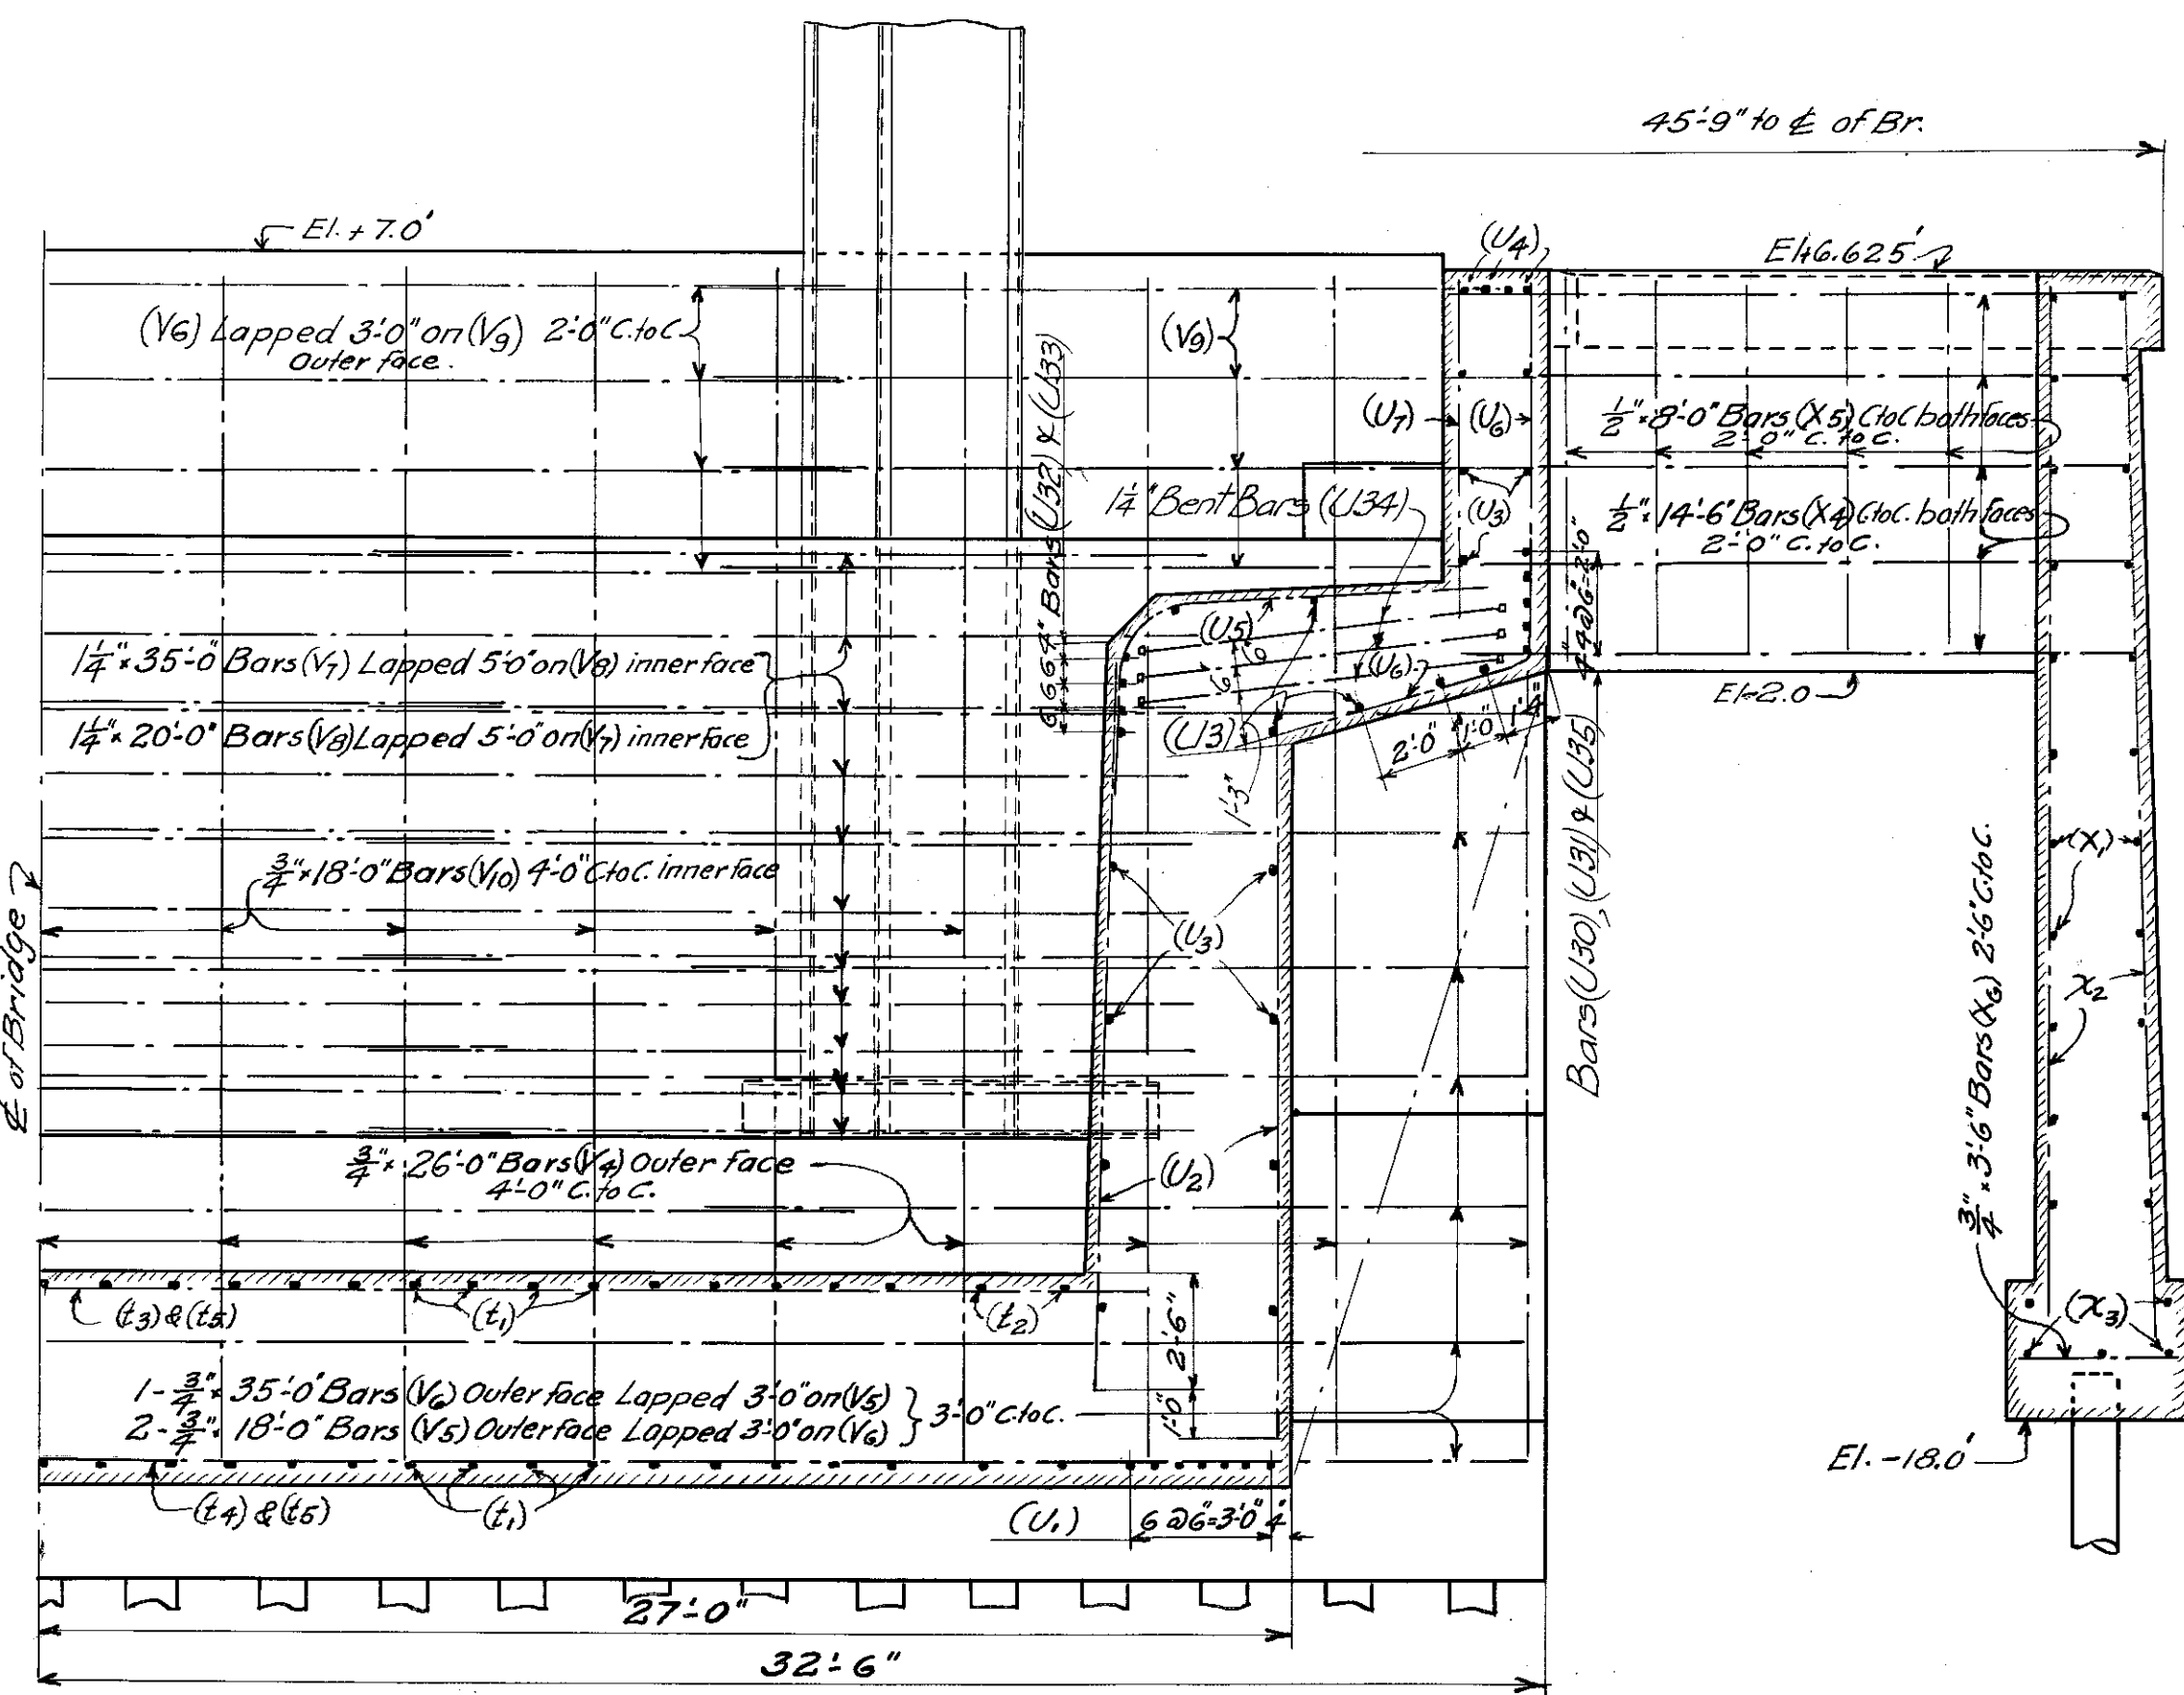 45'-9" to ℄ of Br.
El. + 7.0'
(U4)
El+6.625'
(V6) Lapped 3'-0" on (V9) 2'-0" C. to C.
Outer face.
(V9)
(U7)
(U6)
1/2" x 8'-0" Bars (X5) C to C both faces
2'-0" C. to C.
Bars (U32) & (U33)
6 6 6 4"
1 1/4" Bent Bars (U34)
(U3)
1/2" x 14'-6" Bars (X4) C to C. both faces
2'-0" C. to C.
4" 4@6"=2'-0"
(U5)
6"
6"
(U6)
1 1/4" x 35'-0" Bars (V7) Lapped 5'-0" on (V8) inner face
1 1/4" x 20'-0" Bars (V8) Lapped 5'-0" on (V7) inner face
(U3)
1'-3"
2'-0"
1'-0"
1'-4"
El-2.0
Bars (U30), (U31) & (U35)
3/4" x 18'-0" Bars (V10) 4'-0" C to C. inner face
℄ of Bridge
(U3)
(X1)
X2
3/4" x 3'-6" Bars (X6) 2'-6" C. to C.
3/4" x 26'-0" Bars (V4) Outer face
4'-0" C. to C.
(U2)
(t3) & (t5)
(t1)
(t2)
2'-6"
1'-0"
(X3)
1-3/4" x 35'-0" Bars (V6) Outer face Lapped 3'-0" on (V5)
2-3/4" x 18'-0" Bars (V5) Outer face Lapped 3'-0" on (V6)
3'-0" C. to C.
El. -18.0'
(t4) & (t5)
(t1)
(U1)
6@6"=3'-0" 4"
27'-0"
32'-6"